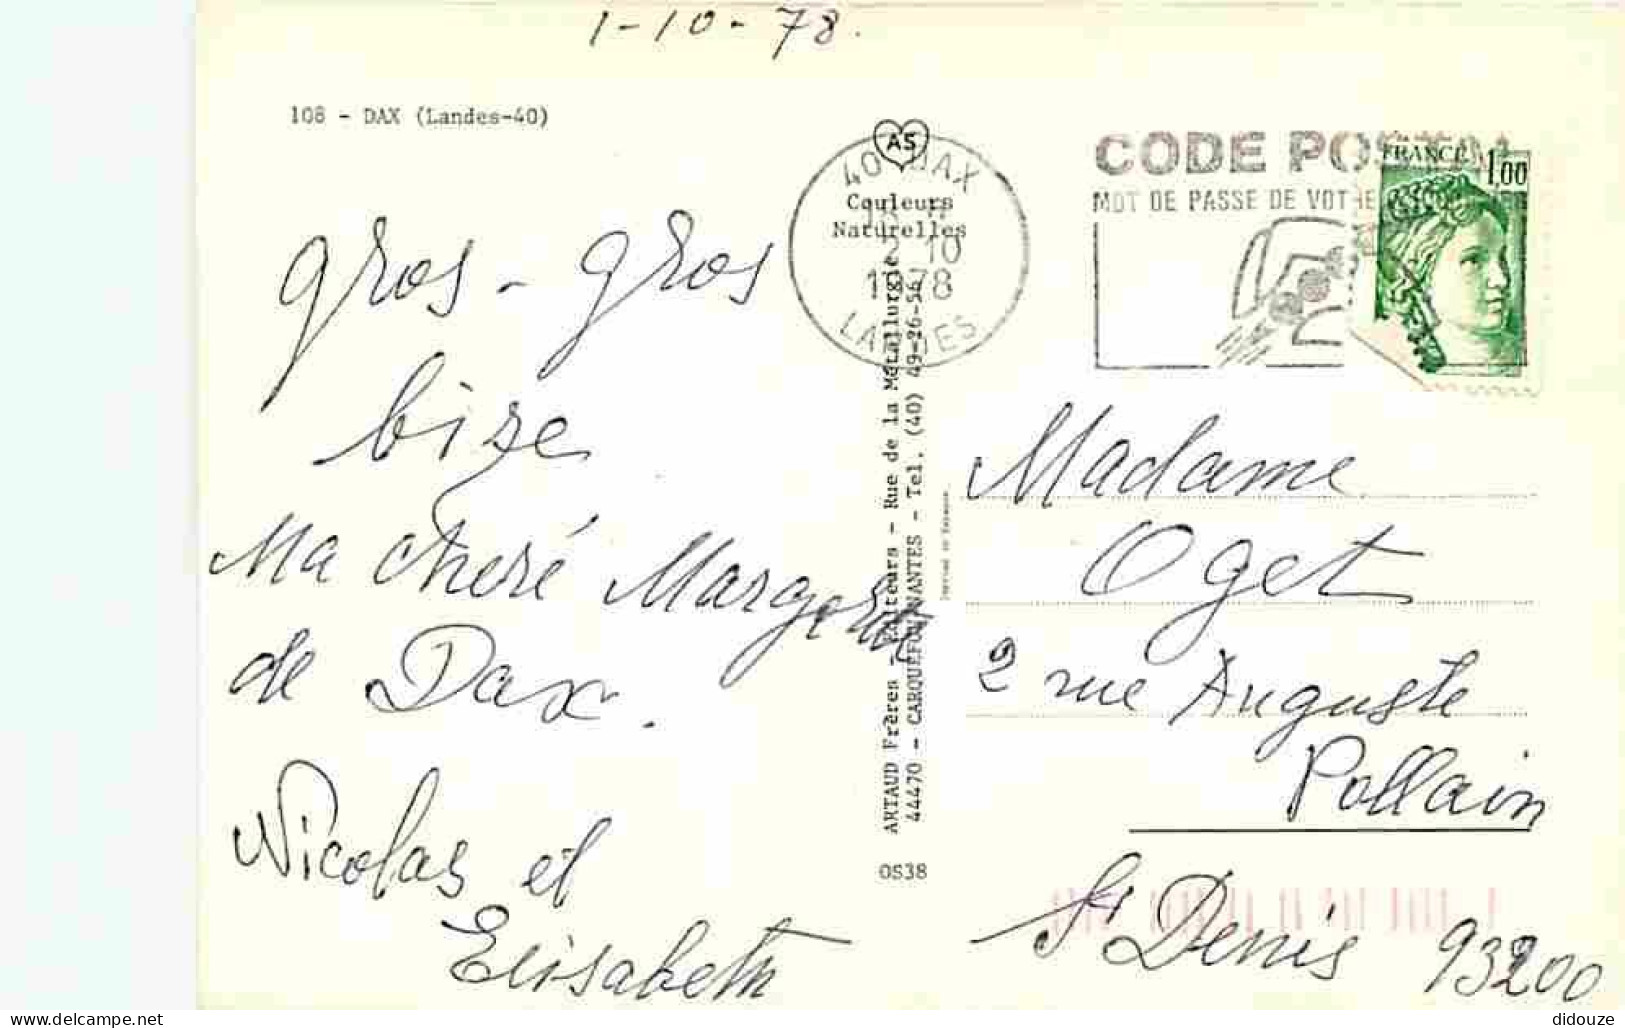 1-10-78.
108 - DAX (Landes-40)
gros - gros
bise
Ma cheré
de Dax.
Nicolas et
Elisabeth
AS
Couleurs
Naturelles
40 DAX
10
1978
LANDES
ARTAUD Frères - Editeurs - Rue de la Métallurgie
44470 - CARQUEFOU-NANTES - Tel. (40) 49-26-56
OS38
CODE POSTAL
MOT DE PASSE DE VOTRE
FRANCE 1,00
Madame
Oget
2 rue Auguste
Pollain
St Denis 93200
delcampe.net
didouze